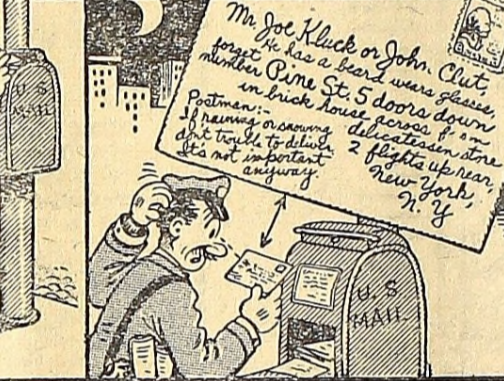 Mr. Joe Kluck or John Clut,
He has a beard wears glasses,
forget
number Pine St. 5 doors down
in brick house across from
delicatessen store
2 flights up rear,
New York,
N. Y
Postman:-
If raining or snowing
don't trouble to deliver
It's not important
anyway.
U. S
MAIL
U S
MAIL